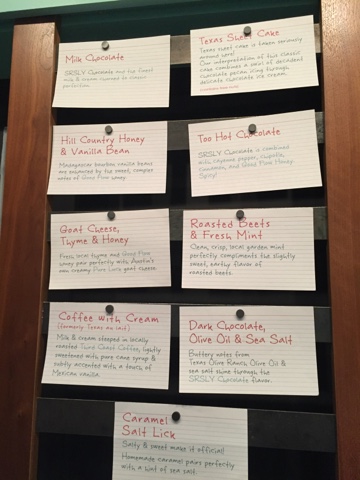 Milk Chocolate
SRSLY Chocolate and the finest
milk & cream churned to classic
perfection.
Texas Sheet Cake
Texas sheet cake is taken seriously
around here!
Our interpretation of this classic
cake combines a swirl of decadent
chocolate pecan icing through
delicate chocolate ice cream.
Hill Country Honey
& Vanilla Bean
Madagascar bourbon vanilla beans
are enhanced by the sweet, complex
notes of Good Flow honey.
Too Hot Chocolate
SRSLY Chocolate is combined
with cayenne pepper, chipotle,
cinnamon, and Good Flow Honey.
Spicy!
Goat Cheese,
Thyme & Honey
Fresh, local thyme and Good Flow
honey pair perfectly with Austin's
own creamy Pure Luck goat cheese.
Roasted Beets
& Fresh Mint
Clean, crisp, local garden mint
perfectly compliments the slightly
sweet, earthy flavor of
roasted beets.
Coffee with Cream
(formerly Texas au lait)
Milk & cream steeped in locally
roasted Third Coast Coffee, lightly
sweetened with pure cane syrup &
subtly accented with a touch of
Mexican vanilla.
Dark Chocolate,
Olive Oil & Sea Salt
Buttery notes from
Texas Olive Ranch Olive Oil &
sea salt shine through the
SRSLY Chocolate flavor.
Caramel
Salt Lick
Salty & sweet make it official!
Homemade caramel pairs perfectly
with a hint of sea salt.